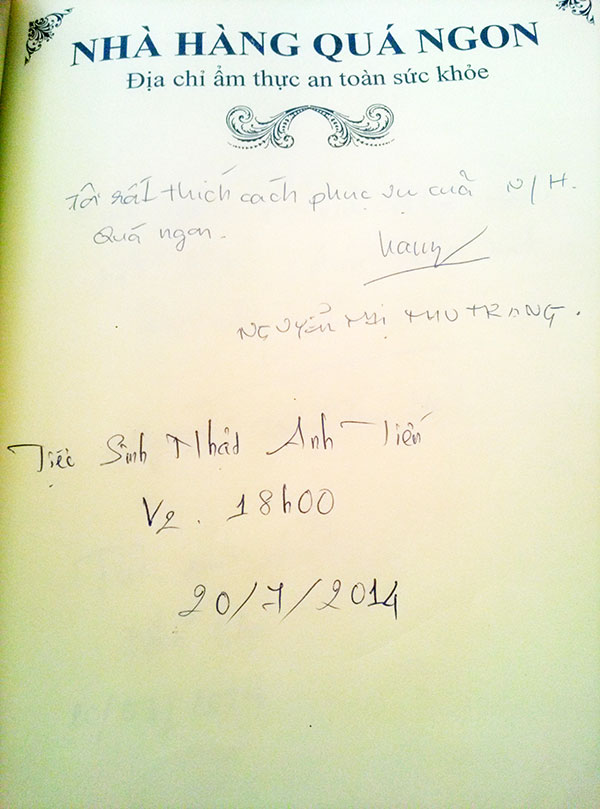 NHÀ HÀNG QUÁ NGON
Địa chỉ ẩm thực an toàn sức khỏe
Tôi rất thích cách phục vụ của N/H.
Quá ngon.
NGUYỄN THỊ THU TRANG.
Tiệc Sinh Nhật Anh Tiến
V2. 18h00
20/7/2014